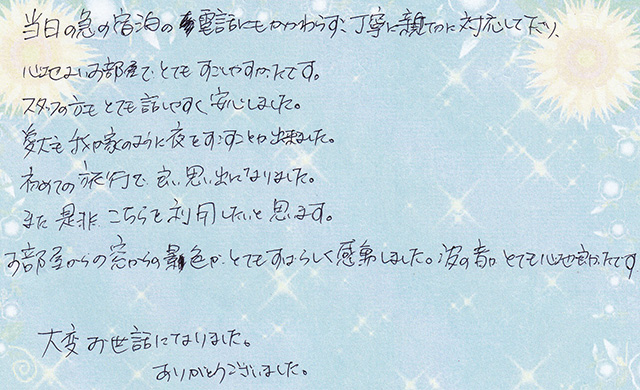 当日の急の宿泊の電話にもかかわらず、丁寧に親切に対応して下さり、
心地よいお部屋でとてもすごしやすかったです。
スタッフの方もとても話しやすく安心しました。
愛犬も我が家のように夜をすごすことが出来ました。
初めての旅行で良い思い出になりました。
また是非こちらを利用したいと思います。
お部屋からの窓からの景色が、とてもすばらしく感動しました。波の音がとても心地良かったです
大変お世話になりました。
ありがとうございました。